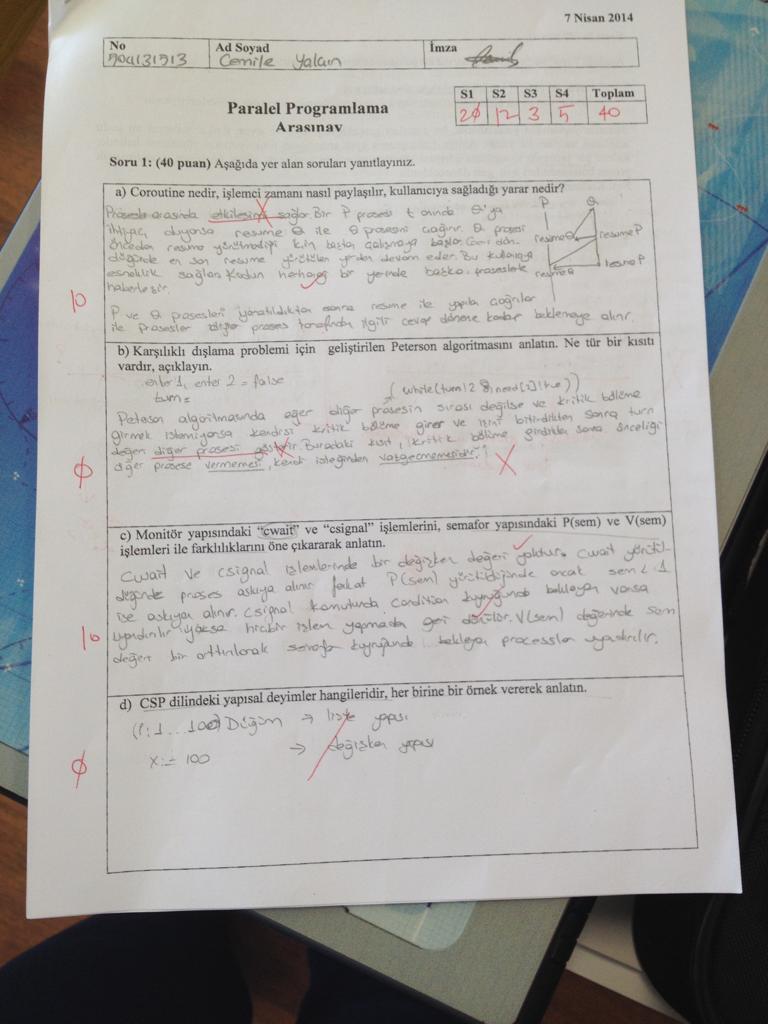 7 Nisan 2014
No Ad Soyad İmza
704131513 Cemile Yalçın
S1 S2 S3 S4 Toplam
20 12 3 5 40
Paralel Programlama
Arasınav
Soru 1: (40 puan) Aşağıda yer alan soruları yanıtlayınız.
a) Coroutine nedir, işlemci zamanı nasıl paylaşılır, kullanıcıya sağladığı yarar nedir?
P Q
Proses arasında etkileşimi sağlar. Bir P prosesi t anında Q'ya
ihtiyaç duyuyorsa resume Q ile Q prosesini çağırır. Q prosesi
önceden resume yürütmediği için baştan çalışmaya başlar. Geri dön-
düğünde en son resume yürütülen yerden devam eder. Bu kullanıcıya
esneklik sağlar. Kodun herhangi bir yerinde başka proseslerle
haberleşir.
resume Q resume P
resume Q resume P
10
P ve Q prosesleri yaratıldıktan sonra resume ile yapılan çağrılar
ile prosesler diğer proses tarafından ilgili cevap dönene kadar beklemeye alınır.
b) Karşılıklı dışlama problemi için geliştirilen Peterson algoritmasını anlatın. Ne tür bir kısıtı
vardır, açıklayın.
enter 1, enter 2 = false
turn =
Peterson algoritmasında eğer diğer prosesin sırası değilse ve kritik bölüme
girmek istemiyorsa kendisi kritik bölüme girer ve işini bitirdikten sonra turn
değeri diğer prosesi gösterir. Buradaki kısıt, kritik bölüme girdikten sonra önceliği
diğer prosese vermemesi, kendi isteğinden vazgeçmemesidir.
0
c) Monitör yapısındaki “cwait” ve “csignal” işlemlerini, semafor yapısındaki P(sem) ve V(sem)
işlemleri ile farklılıklarını öne çıkararak anlatın.
cwait ve csignal işlemlerinde bir değişken değeri yoktur. cwait yürütül-
düğünde proses askıya alınır fakat P(sem) yürütüldüğünde ancak sem < 1
ise askıya alınır. csignal komutunda condition kuyruğunda bekleyen varsa
uyandırılır yoksa hiçbir işlem yapmadan geri dönülür. V(sem) değerinde sem
değeri bir arttırılarak semafor kuyruğunda bekleyen processler uyandırılır.
10
d) CSP dilindeki yapısal deyimler hangileridir, her birine bir örnek vererek anlatın.
(i:1...100) Düğüm → liste yapısı
x:= 100 → değişken yapısı
0